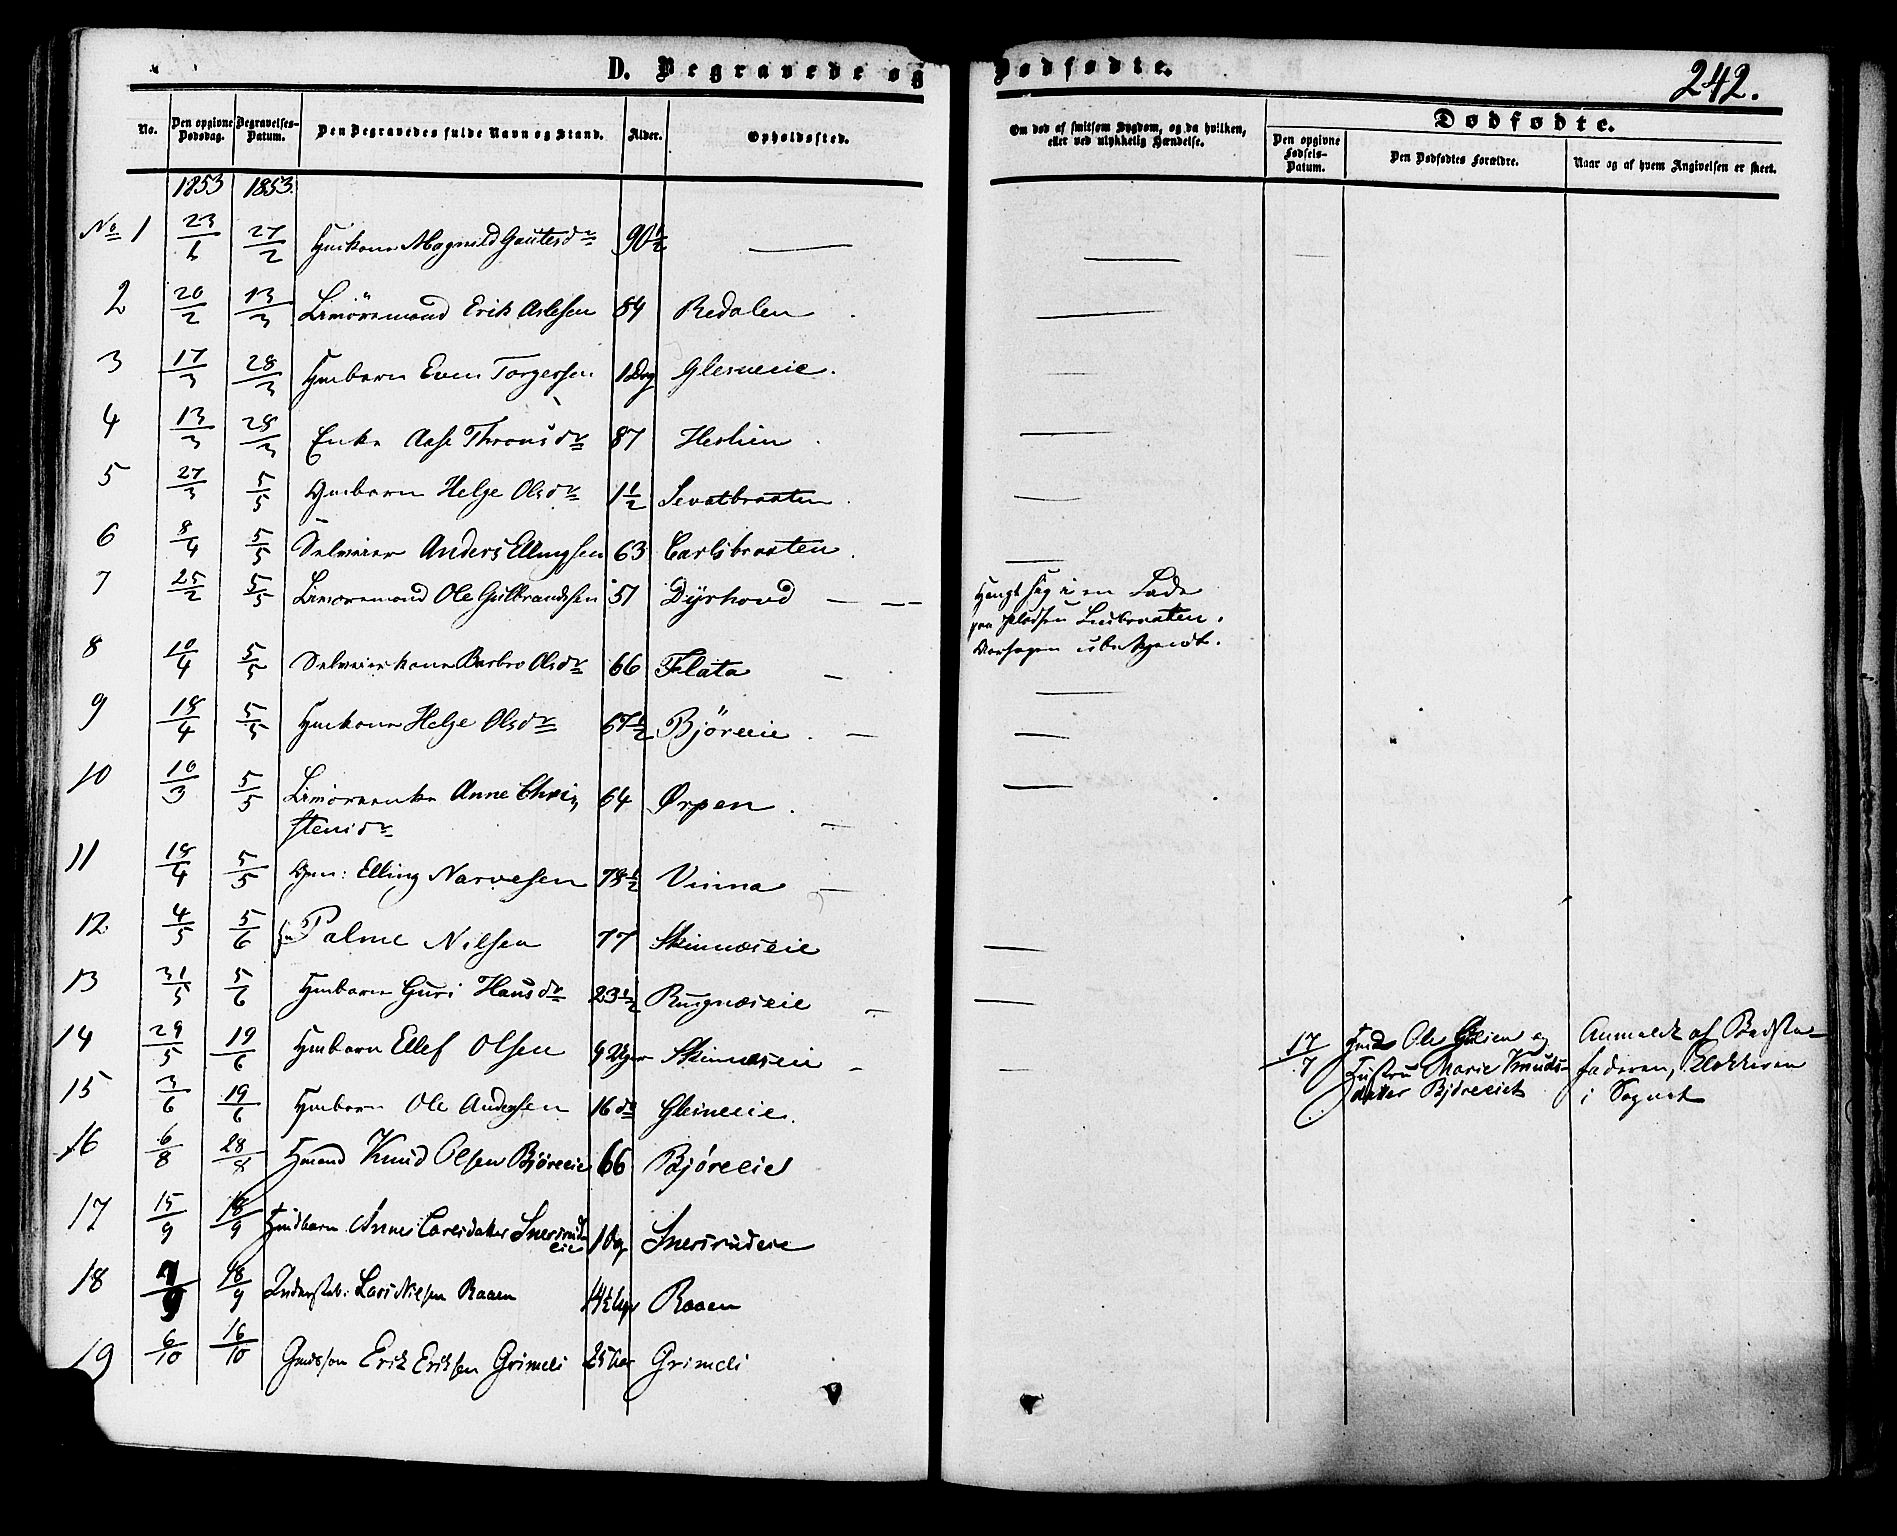 D. Begravede og Dødfødte.
242.
No.
Den opgivne Dødsdag.
Begravelses-Datum.
Den Begravedes fulde Navn og Stand.
Alder.
Opholdssted.
Om død af smitsom Sygdom, og da hvilken, eller ved ulykkelig Hændelse.
Dødfødte.
Den opgivne Fødsels-Datum.
Den Dødfødtes Forældre.
Naar og af hvem Angivelsen er skeet.
1853 1853.
No 1 23/ 27/2 Huskone Magnild Gautesdr 90 1/2 —
2 20/2 13/3 Erik Aslesen 84 Redalen
3 17/3 28/3 Hmbarn Even Torgersen 1 Dag Glesneeie.
4 13/3 28/3 Enke Aase Thronsdr 87
5 27/3 5/5 Hmbarn Helge Olsdr 1 1/2 Sevatbraaten
6 8/4 5/5 Selveier Anders Ellingsen 63 Carlsbraaten
7 25/2 5/5 Ole Gulbrandsen 51 Dyrhovd — Hengt sig i en Lade
paa Pladsen Liebraaten.
Aarsagen ubekjendt.
8 10/4 5/5 Selveierkone Barbro Olsdr 66 Flata
9 18/4 5/5 Huskone Helge Olsdr 67 1/2 Bjøreeie
10 10/3 5/5 Anne Chri-
stensdr 64 Ørpen
11 18/4 5/5 Elling Narvesen 78 1/2 Vinna
12 4/5 5/6 Palme Nilsen 77 Skinnæseie
13 31/5 5/6 Hmbarn Guri Hansdr 23 1/2 Rugnæseie
14 29/5 19/6 Hmbarn Ellef Olsen 9 Uger Skinnæseie
17/7 Ole Gulsen og
Hustru Marie Knuds-
datter Bjøreeiet
Anmeldt af Bedste-
faderen, Klokkeren
i Sognet
15 3/6 19/6 Hmbarn Ole Andersen 16 do Glesneeie.
16 6/8 28/8 Hmand Knud Olsen Bjøreeie 66 Bjøreeiet
17 15/9 18/9 Husbarn Anne Larsdatter Snersrud-
eie 1 Dag Snersrudeie
18 7/9 18/9 Lars Nielsen Raaen 14 1/2 Raaen
19 6/10 16/10 Gmdssøn Erik Eriksen Grimeli 25 Aar Grimeli